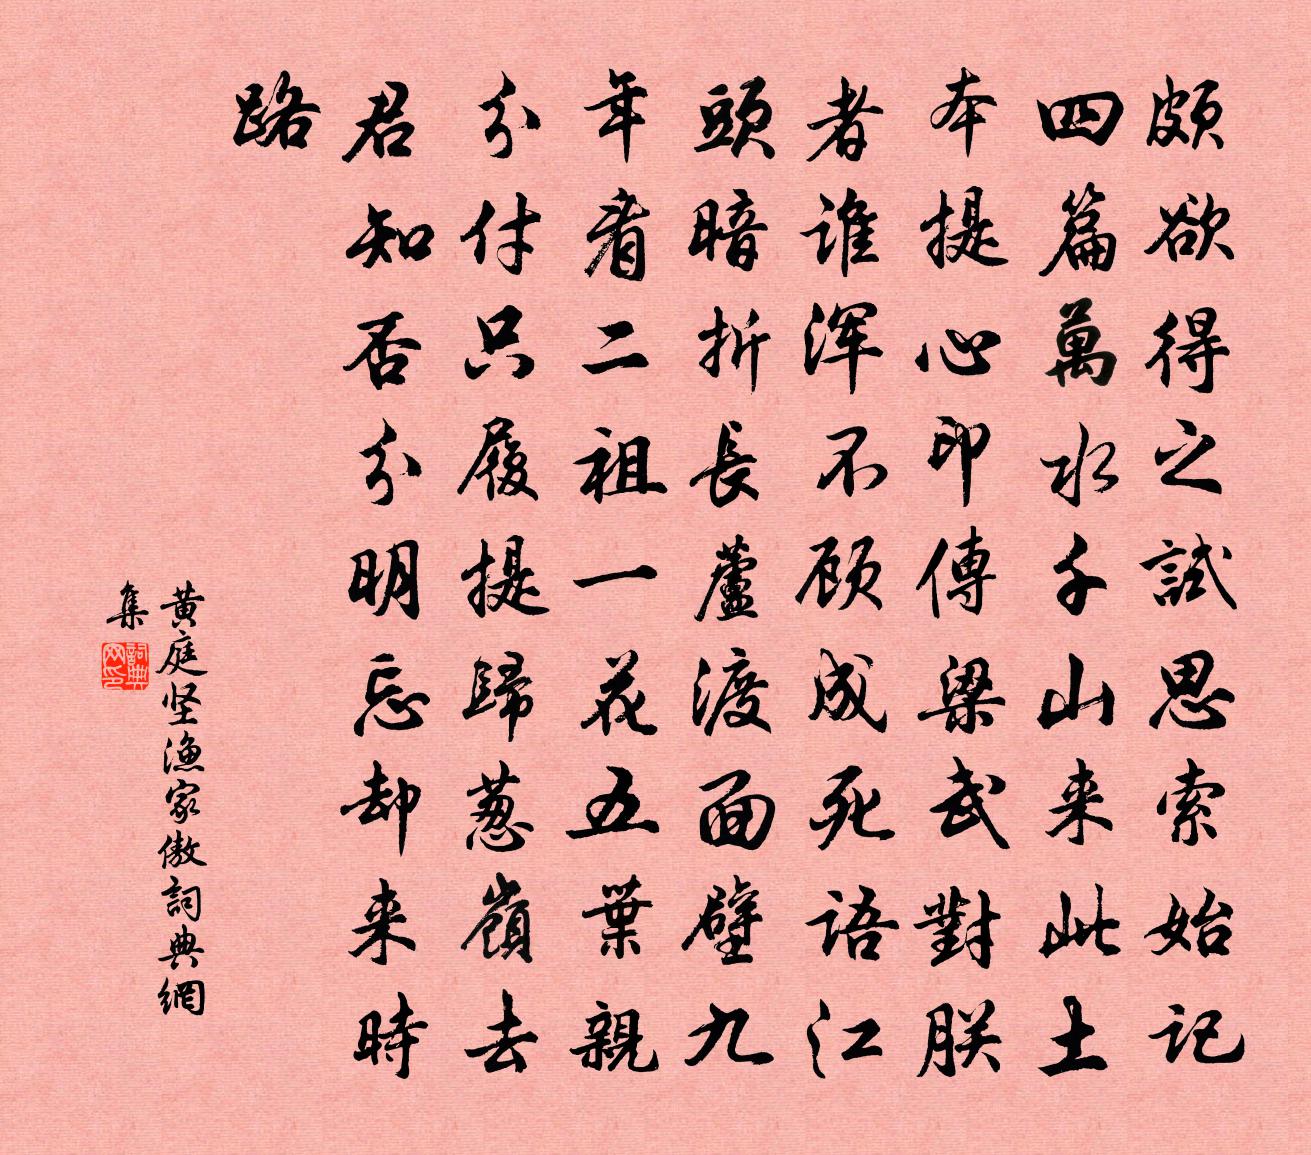 頗欲得之試思索始記
四篇萬水千山来此土
本提心印傳梁武對朕
者誰渾不顾成死語江
頭暗折長蘆渡面壁九
年看二祖一花五葉親
分付只履提歸葱嶺去
君知否分明忘却来時
路
黄庭坚漁家傲詞典網
集
詞典
网印